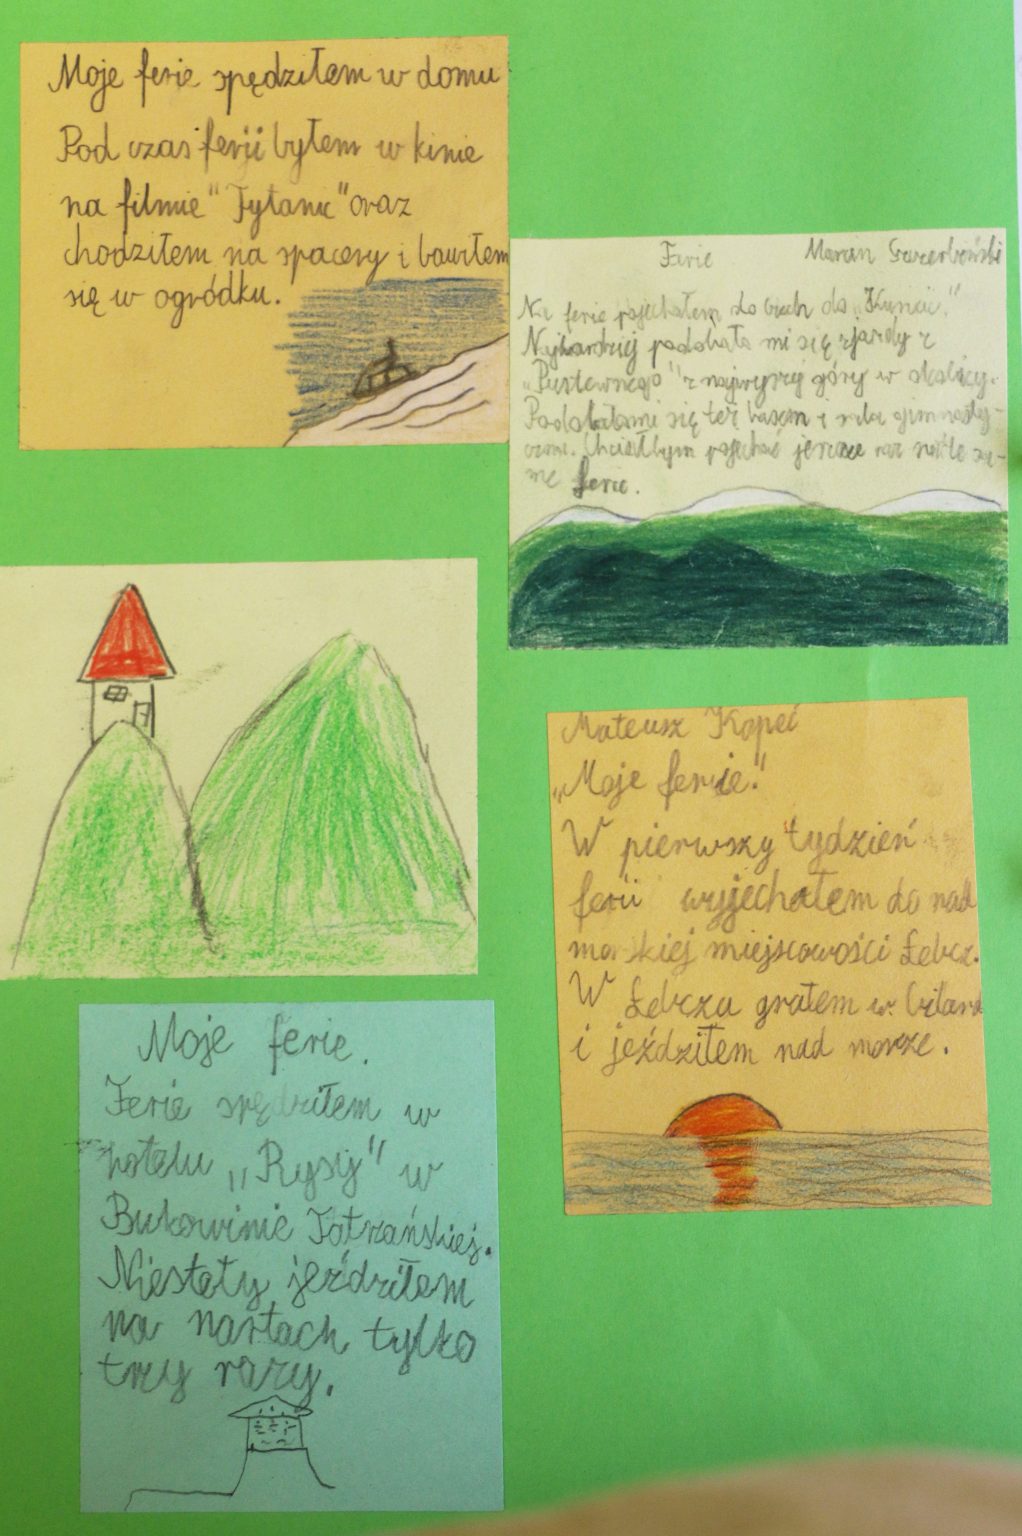 Moje ferie spędziłem w domu
Pod czas ferii byłem w kinie
na filmie "Tytanic" oraz
chodziłem na spacery i bawiłem
się w ogródku.
Ferie Marcin
Na ferie pojechałem do
Najbardziej podobała mi się zjazdy z
z najwyszej góry w okolicy.
się też basen i sala gimnasty-
Chciałbym pojechać jeszcze raz na te sa-
me ferie.
Mateusz Kopeć
„Moje ferie."
W pierwszy tydzień
ferii wyjechałem do nad
morskiej miejscowości Łebcz.
W Łebczu grałem w bilard
i jeździłem nad morze.
Moje ferie.
Ferie spędziłem w
hotelu „Rysy" w
Bukowinie Tatrzańskiej.
Niestety jeździłem
na nartach tylko
trzy razy.